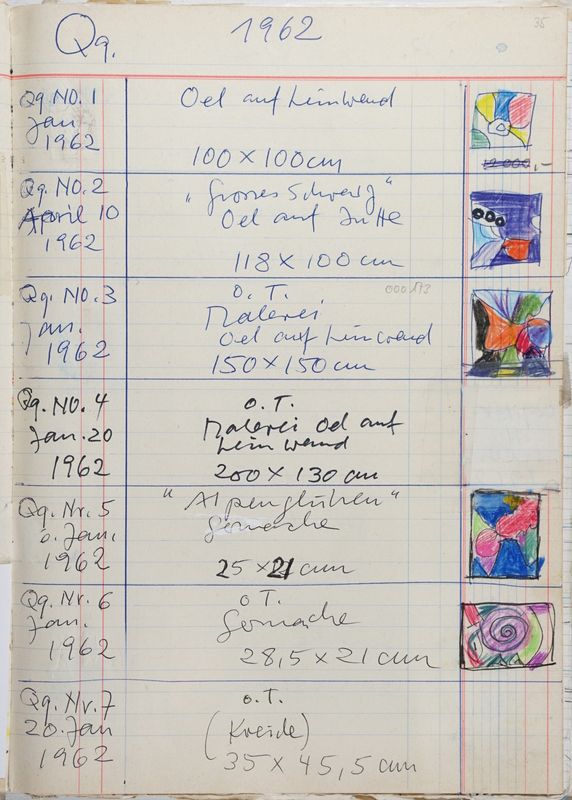 35
Qq. 1962
Qq NO. 1
Jan
1962
Oel auf Leinwand
100 x 100 cm
12000,-
Qq. NO. 2
April 10
1962
"
"
Oel auf Jutte
118 x 100 cm
Qq. NO. 3
Jan.
1962
O. T.
000173
Malerei
Oel auf Leinwand
150 x 150 cm
Qq. NO. 4
Jan. 20
1962
O. T.
Malerei Oel auf
Leinwand
200 x 130 cm
Qq. Nr. 5
Jan.
1962
"Alpenglühen"
Gouache
25 x 21 cm
Qq. Nr. 6
Jan.
1962
O T.
Gouache
28,5 x 21 cm
Qq. Nr. 7
20. Jan
1962
o. T.
(Kreide)
35 x 45,5 cm